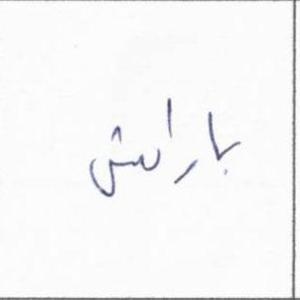 باراش